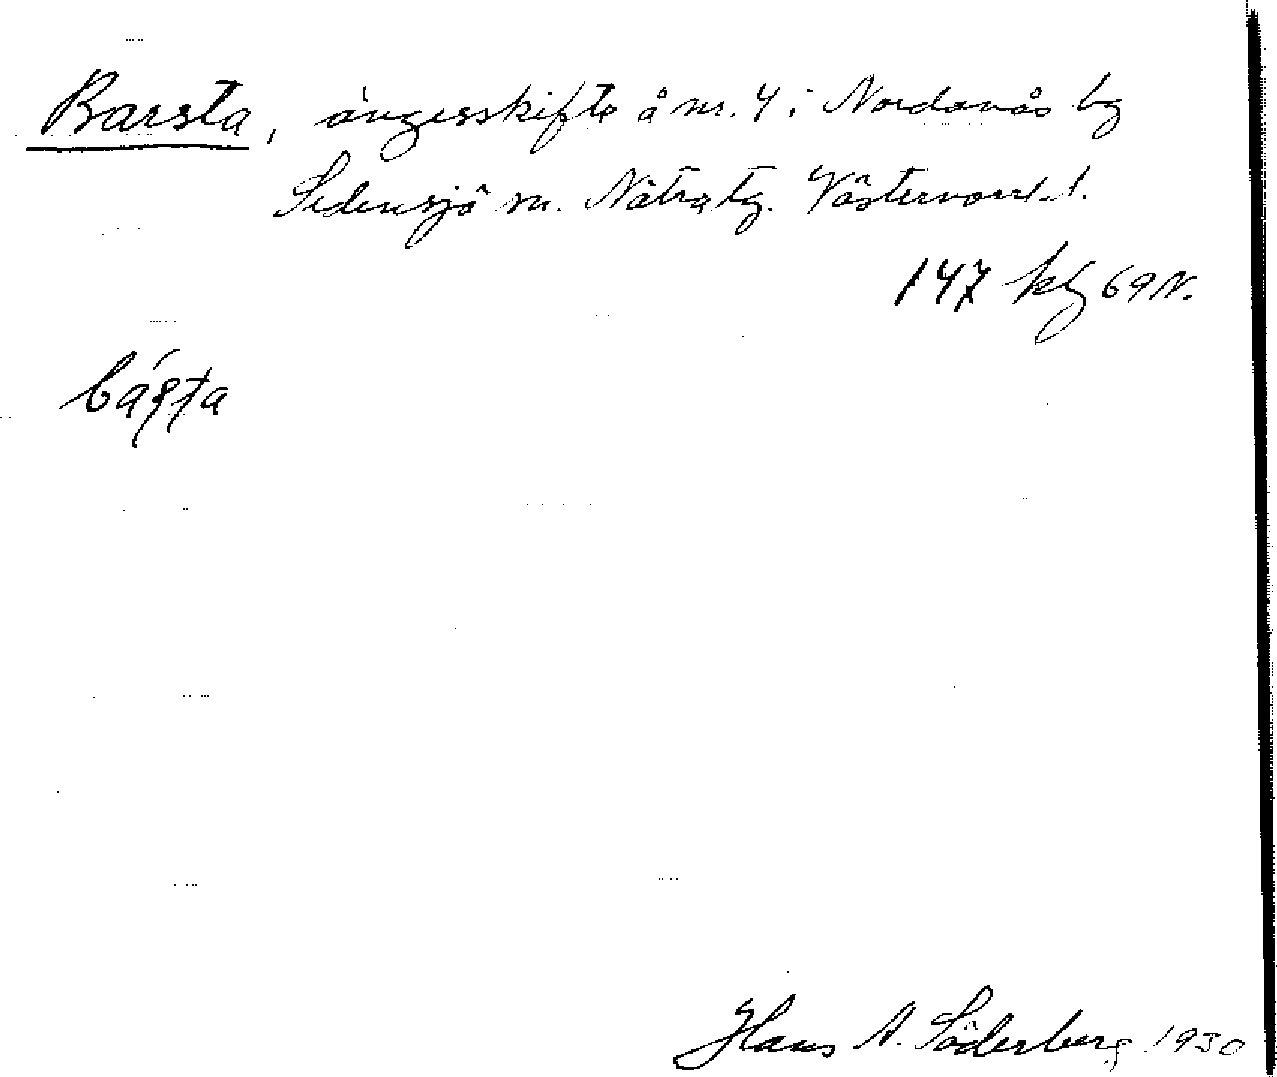 Barsta, ängesskifte å nr. 4 i Nordanås by
Sidensjö sn. Nätra tg. Västernorrl. l.
147 kbl 69 N.
básta
Hans A. Söderberg 1930